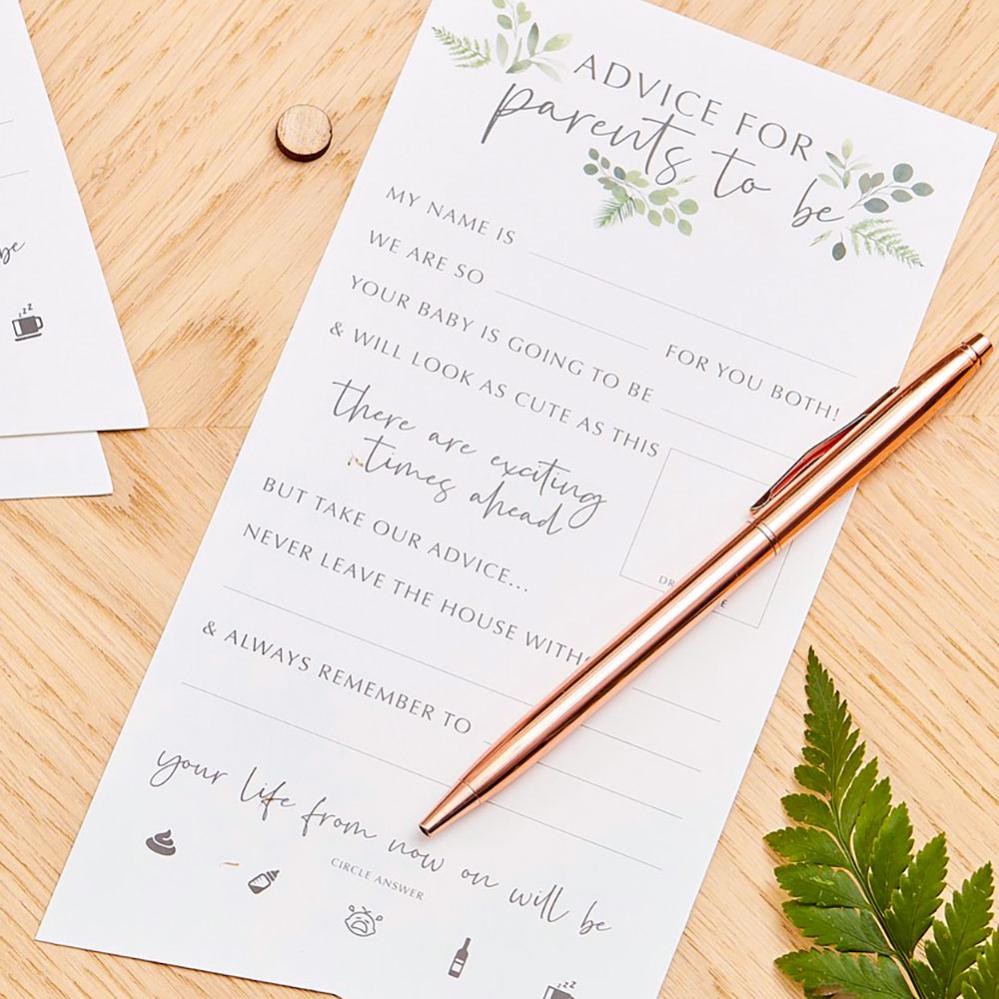 ADVICE FOR
parents to be
MY NAME IS
WE ARE SO FOR YOU BOTH!
YOUR BABY IS GOING TO BE
& WILL LOOK AS CUTE AS THIS
there are exciting
times ahead
BUT TAKE OUR ADVICE...
NEVER LEAVE THE HOUSE
& ALWAYS REMEMBER TO
your life from now on will be
CIRCLE ANSWER
be
zzz
zzz